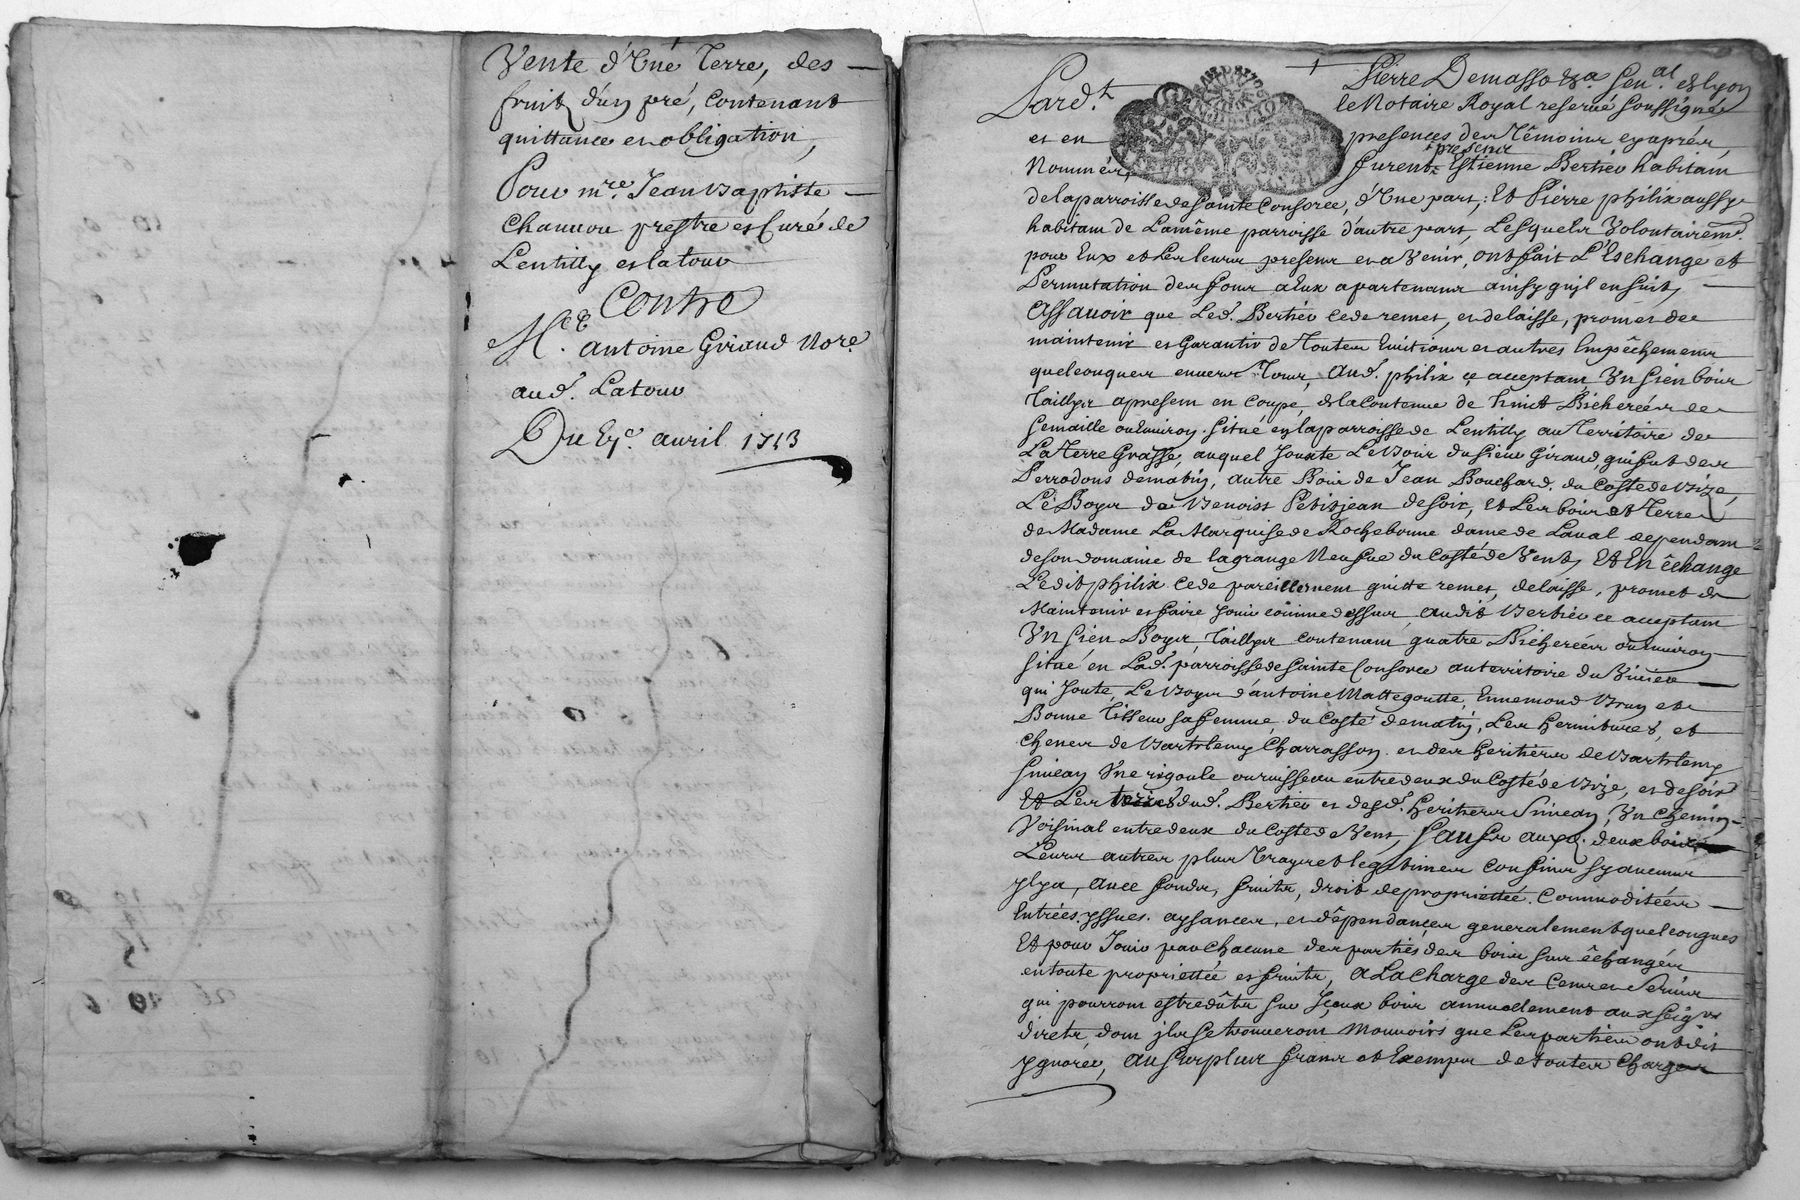 Vente d'Une Terre, des
fruits d'un pré, contenant
quittance et obligation,
Pour mre. Jean Baptiste
Chanuou prestre et Curé de
Lentilly et latour
Contre
Me. antoine Giraud Nore.
aud. Latour
Du avril 1713
Pierre Demasso &a Sénal. de Lyon
Pard.t le Notaire Royal reservé soussigné
et en presences des Témoins cy après
Nommés, furent present Estienne Bertieu habitant
de la parroisse de sainte Consorce, d'Une part; Et Pierre philix aussy
habitant de La même parroisse d'autre part, Lesquels Volontairemt.
pour Eux et Les leurs present et a Venir, ont fait L'Eschange et
Permutation des fons a Eux apartenans ainsy qu'il ensuit,
Assavoir que Led. Bertieu cede remet, et delaisse, promet de
maintenir et Garantir de Toutes Evictions et autres Empêchemens
quelconques envers Tous, Aud. philix ce acceptant, Un sien bois
Taillys a present en coupe, de la contenue de huict Bicherées de
Semaille ou Environ situé en la parroisse de Lentilly au Territoire de
La Terre Grasse, auquel Jouxte Le Bois du sieur Giraud, qui fut des
Perrodons de matin, autre Bois de Jean Bouchard du Costé de Bize,
Le Boys de Benoist Petitjean de soir, Et Les bois et Terres
de Madame La Marquise de Rochebonne dame de Laval dependant
de son domaine de la grange Neufve du Costé de Vent, Et En échange
Ledit philix cede pareillement quitte remet, delaisse, promet de
Maintenir et faire Jouir comme dessus audit Bertieu ce acceptant
Un sien Boys Taillys contenant quatre Bicherées ou environ
situé en Lad. parroisse de Sainte Consorce au territoire du
qui Joute, Le Boys d'antoine Mattegoutte, Ennemond Brun et
Bonne Tisseur sa femme, du Costé de matin, Les hermitures, et
Chenes de Barthlemy Charrasson et des heritiers de Barthlemy
Simean Une rigoule ou ruisseau entredeux du Costé de Bize, et de soir
Et Les terres dud. Bertieu et desd. heritiers Simean, Un chemin
Voisinal entredeux du Costé de Vent, Sauf auxd. deux bois
Leurs autres plus Vrays et legitimes confins sy aucuns
y Ly a, avec fonds, fruits, droit de propriettée, Commoditées
Entrées, yssues, aysances, et dépendances generalement quelconques
Et pour Jouir par Chacune des parties des bois sur échangés
en toute propriettée et fruits, A La Charge des Cens et Servis
qui pourront estre dûts sur Iceux bois annuellement aux seigrs
directs, dont ils se trouveront mouvoirs que Les parties ont dit
ygnorer, Au surplus francs et Exempts de toutes charges